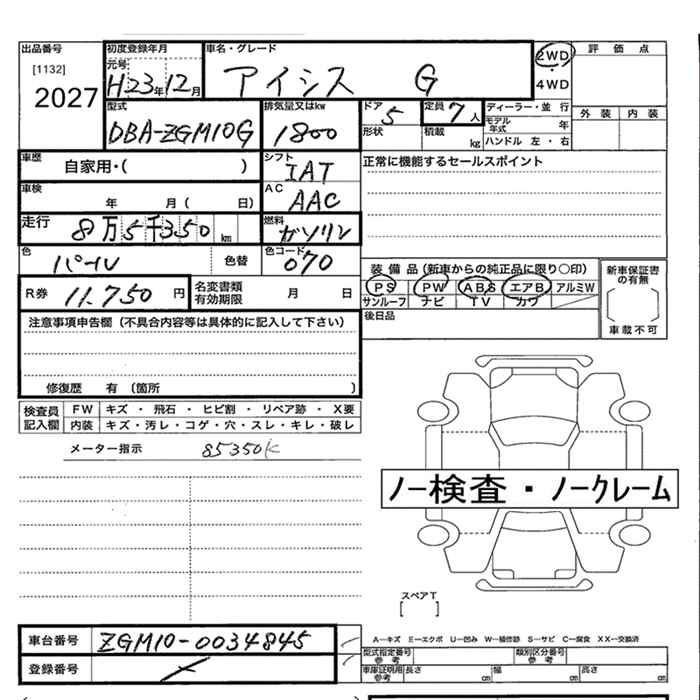 出品番号 初度登録年月 車名・グレード 2WD 評価点
[1132] 元号
2027 H23年12月 アイシス G ・
4WD
型式 排気量又はkw ドア 定員 ディーラー・並 行 外装 内装
DBA-ZGM10G 1800 5 7人 モデル年式 年
形状 積載 kg ハンドル 左・右
車歴 自家用・( ) シフト IAT 正常に機能するセールスポイント
車検 年 月 ( 日) AC AAC
走行 8万5千350km 燃料 ガソリン
色 パール 色替 色コード 070
装備品(新車からの純正品に限り○印) 新車保証書の有無
R券 11.750円 名変書類有効期限 月 日 PS PW ABS エアB アルミW
サンルーフ ナビ TV カワ
車載不可
注意事項申告欄(不具合内容等は具体的に記入して下さい) 後日品
修復歴 有 (箇所 )
検査員記入欄 FW キズ・飛石・ヒビ割・リペア跡・X要
内装 キズ・汚レ・コゲ・穴・スレ・キレ・破レ
メーター指示 85350K
ノー検査・ノークレーム
スペアT
[ ]
車台番号 ZGM10-0034845 A—キズ E—エクボ U—凹み W—補修跡 S—サビ C—腐食 XX—交換済
型式指定番号参考 類別区分番号参考
登録番号 車庫証明用参考 長さ cm 幅 cm 高さ cm